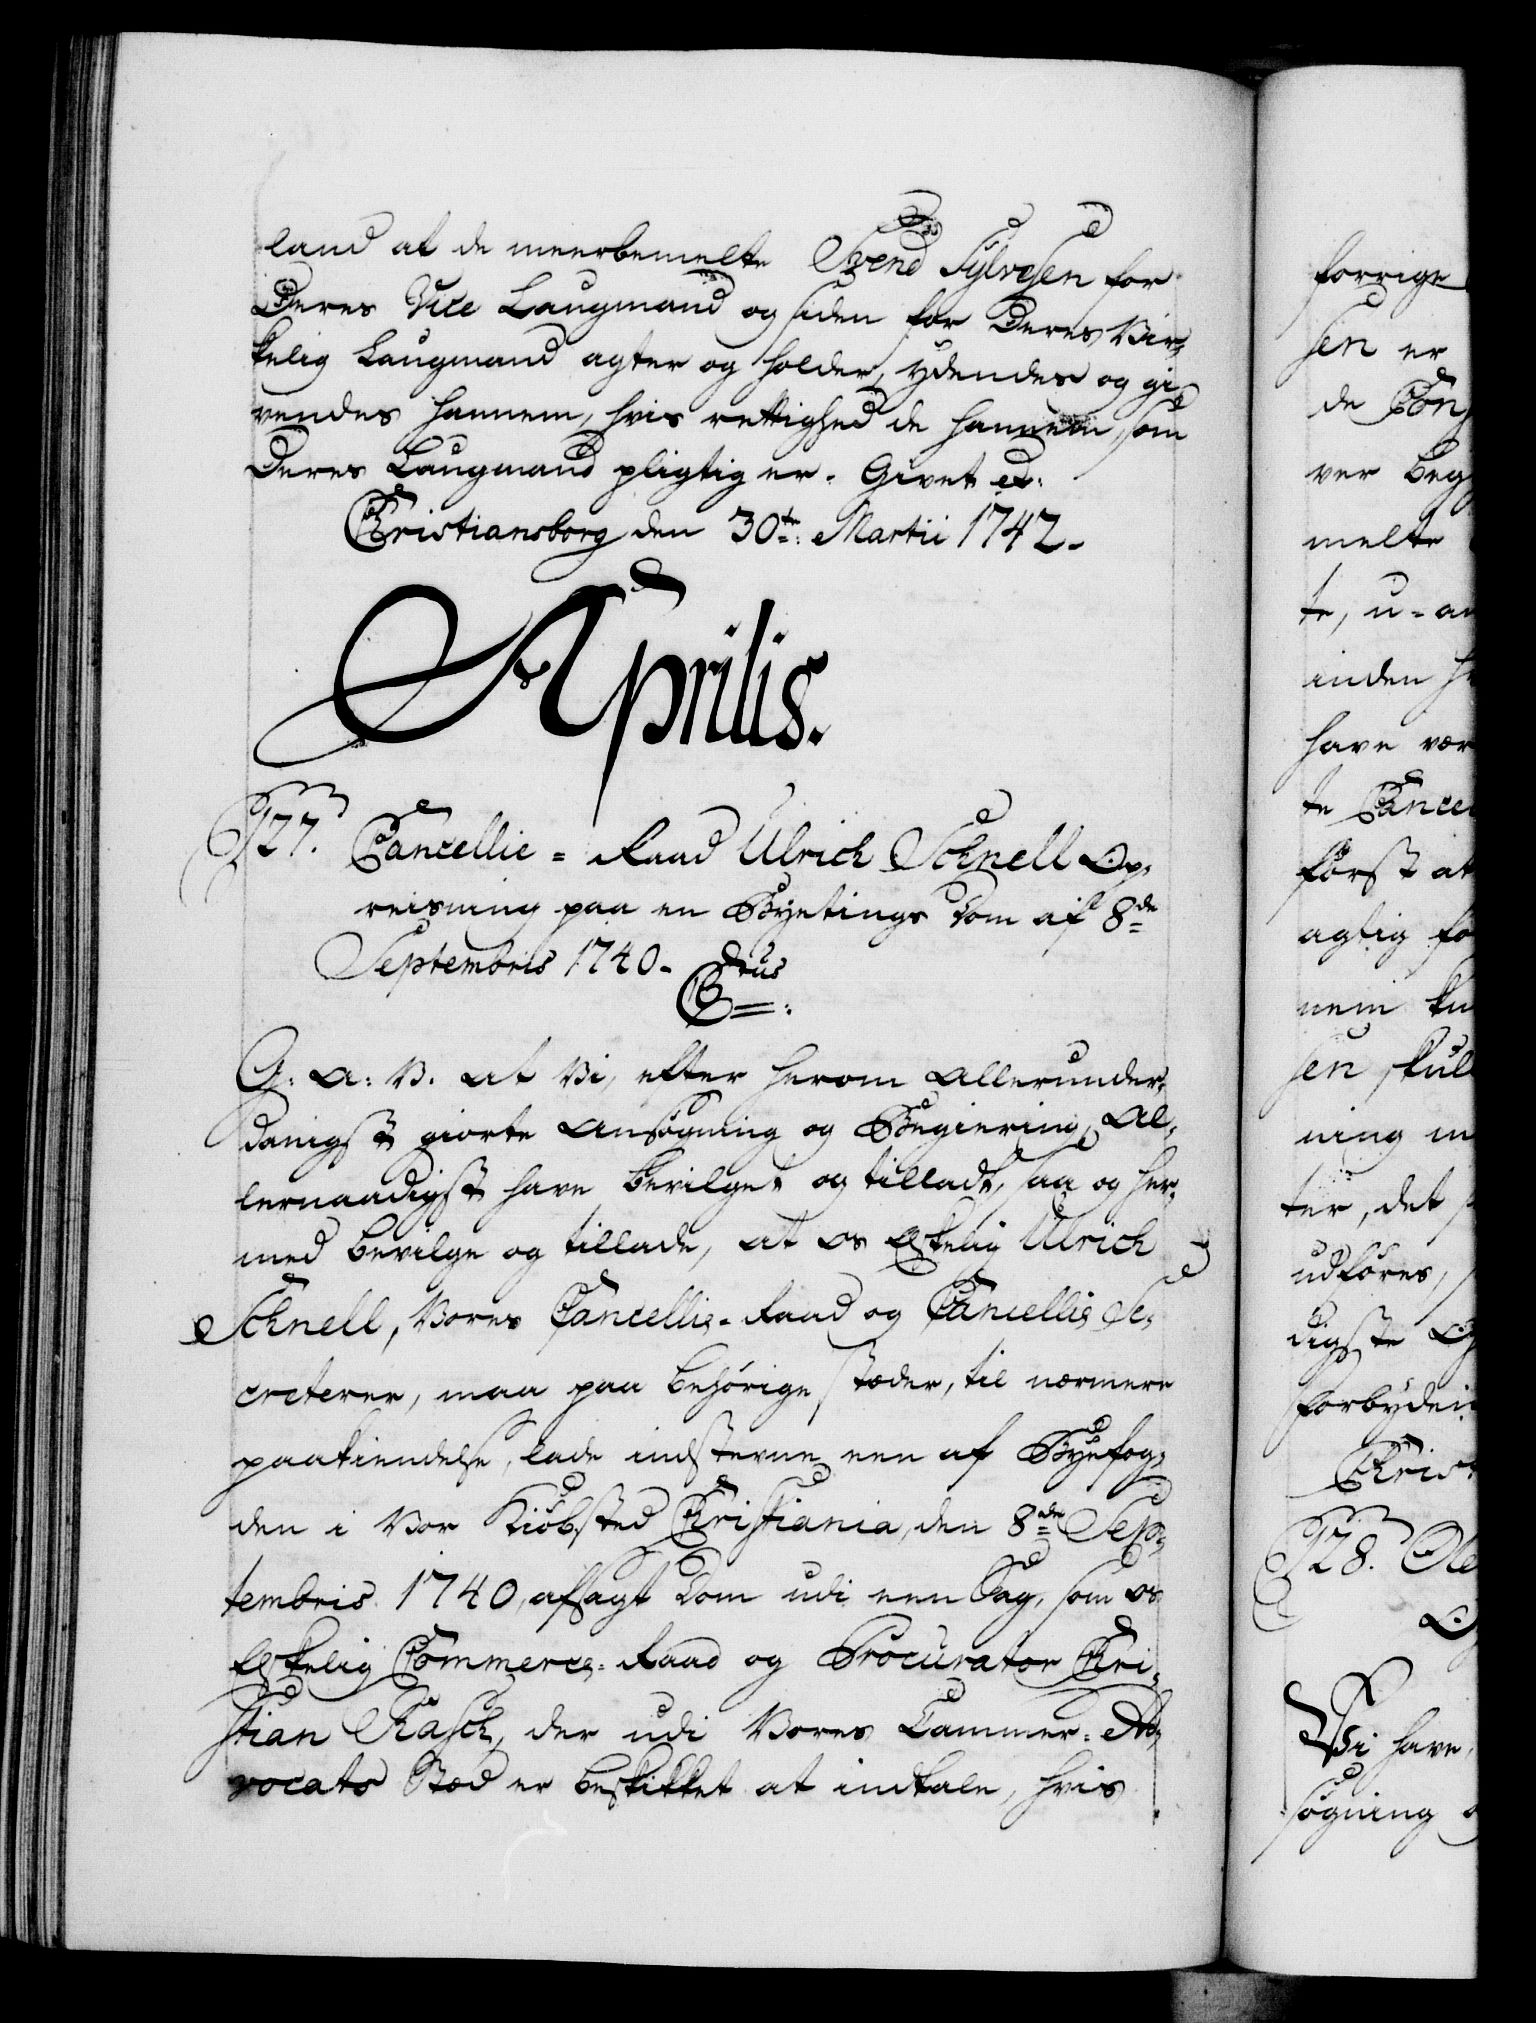 land at de meerbemelte Svend Sylvesen for
Deres Vice Laugmand og siden for Deres Vir-
kelig Laugmand agter og holder, ydendes og gi-
vendes hannem, hvis rettighed de hannem, som
Deres Laugmand pligtig er. Givet &:
Christiansborg den 30te: Martii 1742.
Aprilis.
127. Cancellie-Raad Ulrich Schnell Op-
reisning paa en Byetings Dom af 8de
Septembris 1740.
G: A: V. at Vi, efter herom allerunder-
danigst giorte Ansøgning og Begiering, Al-
lernaadigst have bevilget og tilladt, saa og her-
med bevilge og tillade, at os Elskelig Ulrich
Schnell, Vores Cancellie-Raad og Cancellie Se-
creterer, maa paa behørige stæder, til nærmere
paakiendelse, lade indstevne een af Byefog-
den i Vor Kiøbsted Christiania, den 8de Sep-
tembris 1740, afsagt Dom udi een Sag, som os
Elskelig Commerce-Raad og Procurator Chri-
stian Rasch, der udi Vores Cammer-Ad-
vocats Sted er beskikket at indtale, hvis
forrige
sen er
de
ver beg
melte
te, u-an
inden
have vær
te Cancel
først at
agtig for
nem
sen skul
ning
ter, det
udføres,
digste
forbydei
Chris
128. Ole
Vi have,
søgning